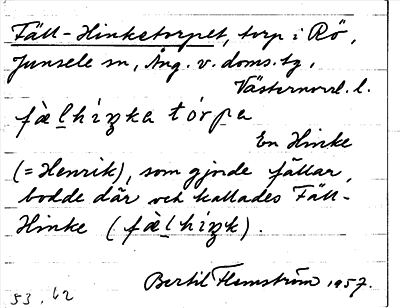 Fäll-Hinketorpet, torp i Rö,
Junsele sn, Ång. v. doms.tg,
Västernorrl. l.
fæ̀l̲híŋka tórpa
En Hinke
(= Henrik), som gjorde fällar,
bodde där och kallades Fäll-
Hinke (fæ̀l̲híŋk).
Bertil Flemström 1957.
53.62